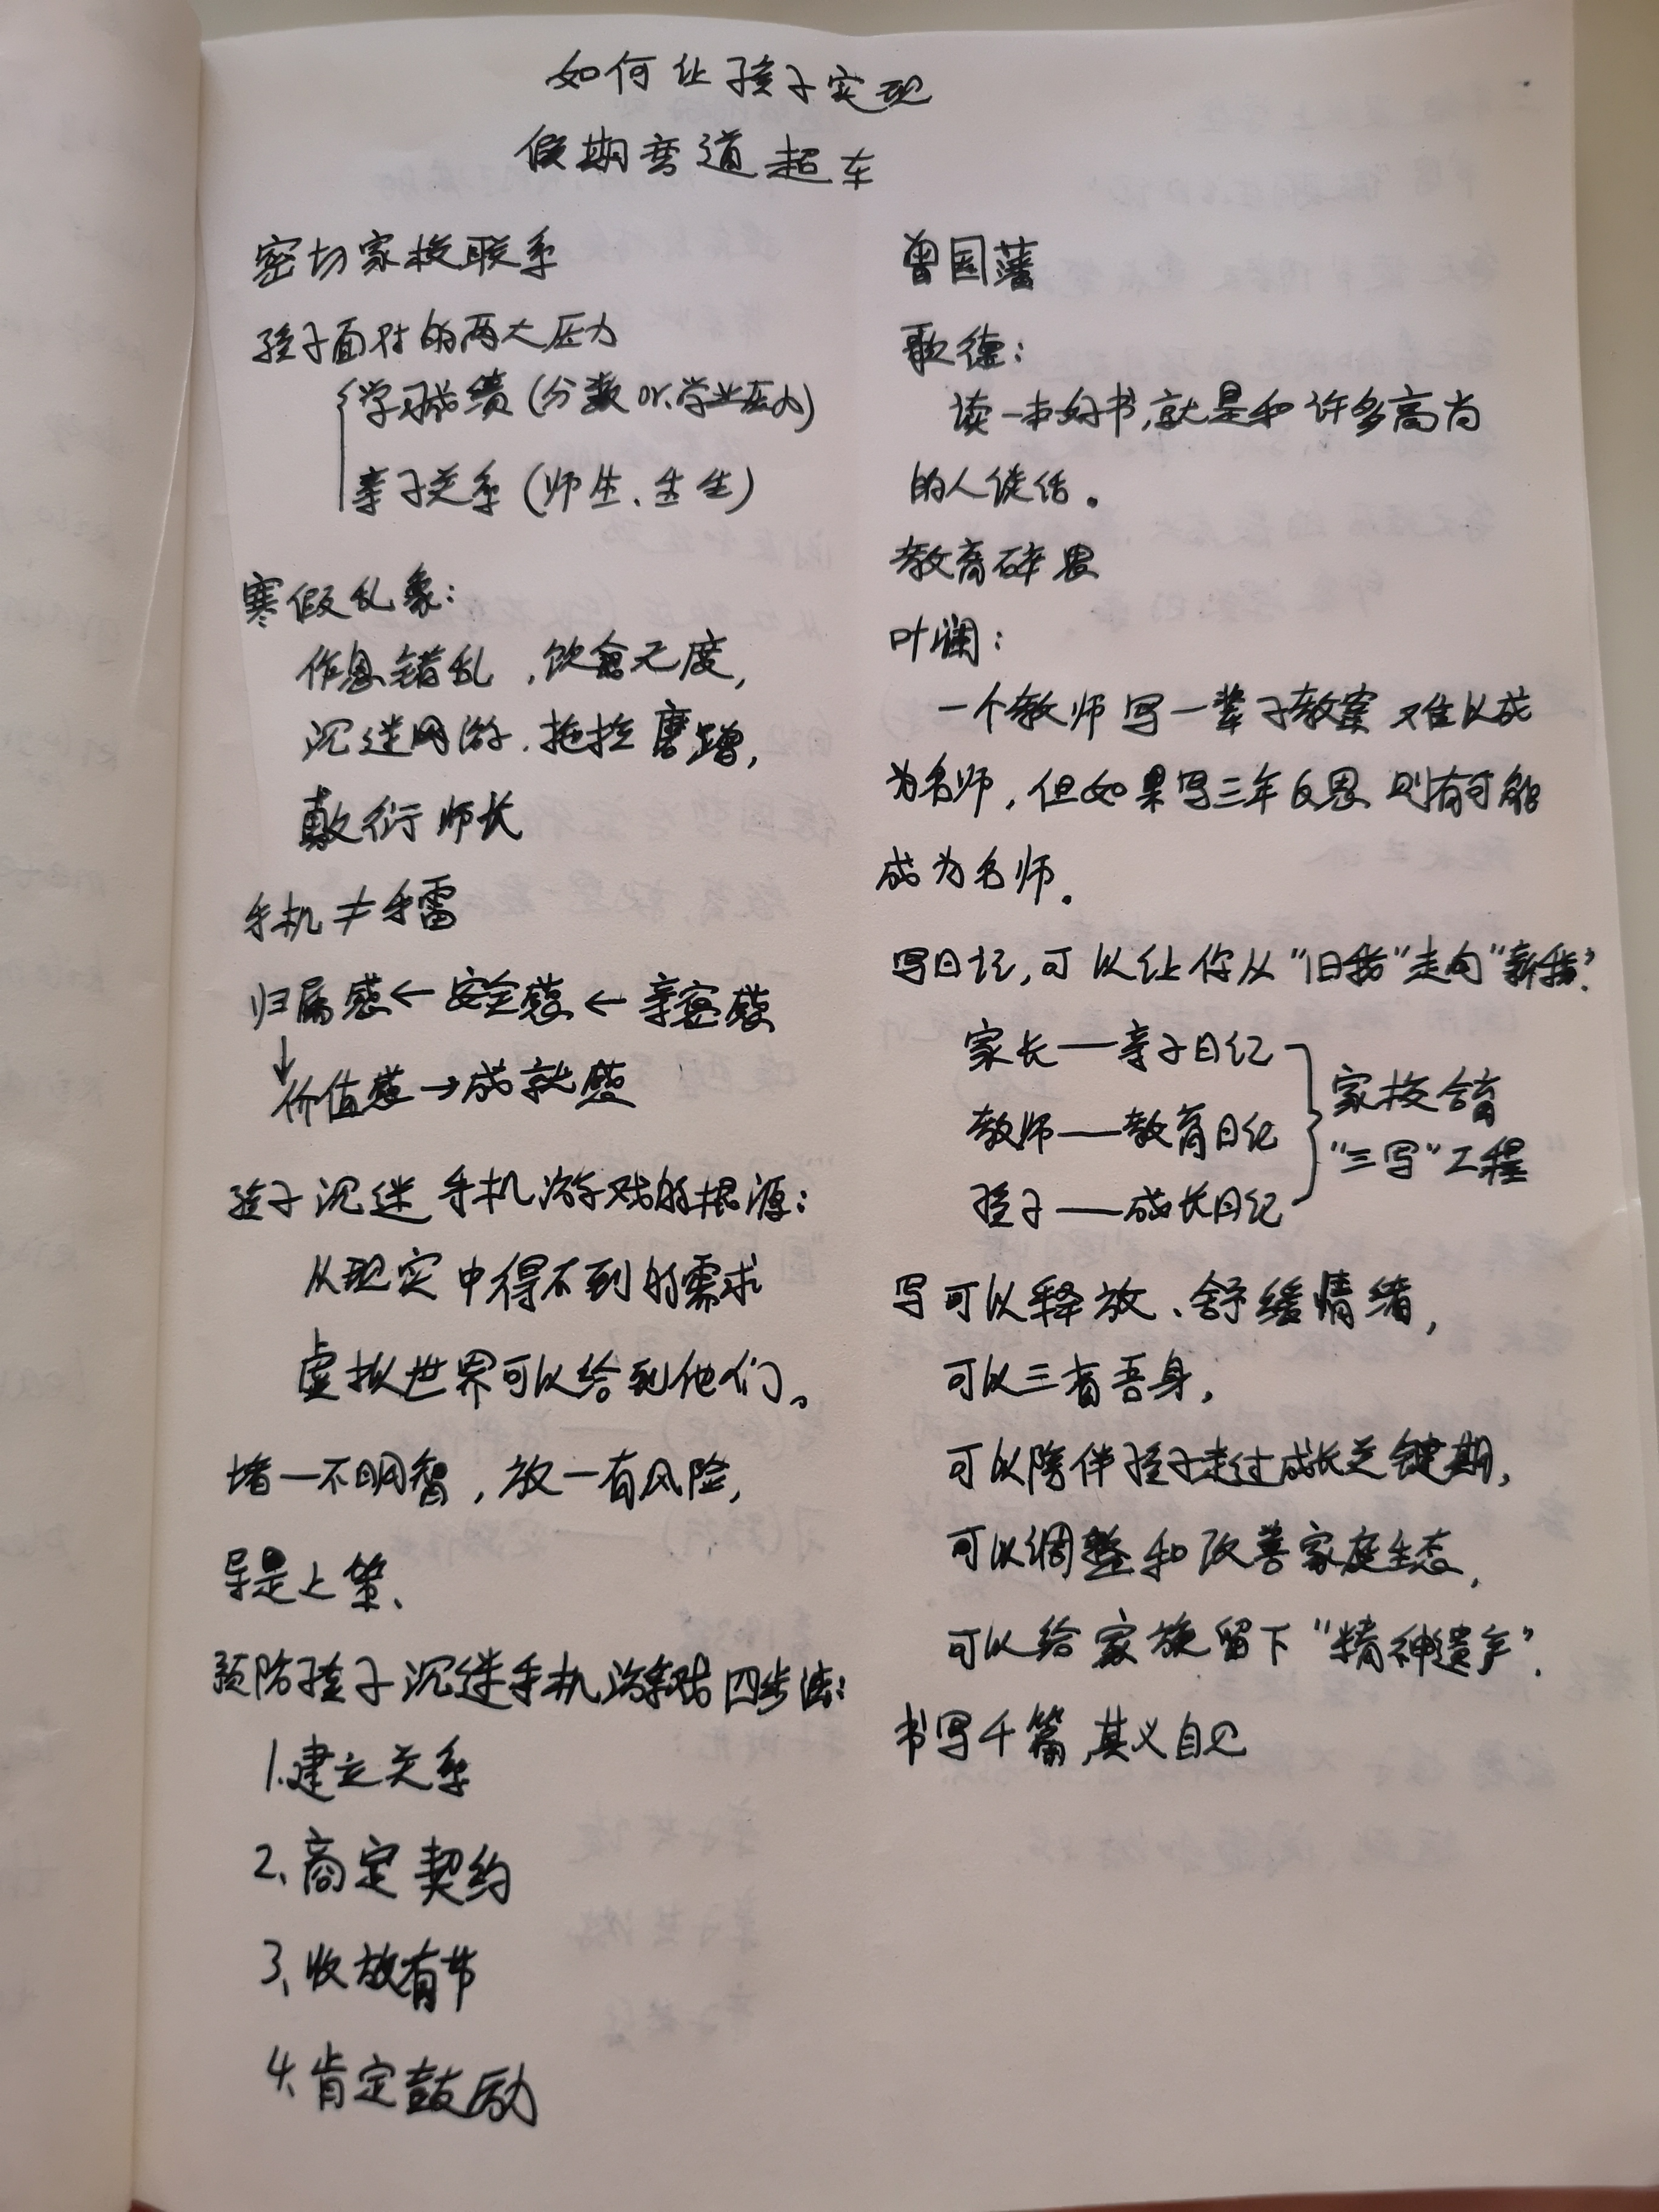 如何让孩子实现
假期弯道超车
密切家校联系
孩子面对的两大压力
学习成绩(分数or.学业压力)
亲子关系(师生、生生)
寒假乱象:
作息错乱,饮食无度,
沉迷网游、拖拉磨蹭,
敷衍师长
手机≠手雷
归属感←安全感←亲密感
↓
价值感→成就感
孩子沉迷手机游戏的根源:
从现实中得不到的需求
虚拟世界可以给到他们。
堵一不明智,放一有风险,
导是上策、
预防孩子沉迷手机游戏四步法:
1.建立关系
2、商定契约
3、收放有节
4.肯定鼓励
曾国藩
歌德:
读一本好书,就是和许多高尚
的人谈话。
教育碎思
叶澜:
一个教师写一辈子教案难以成
为名师,但如果写三年反思则有可能
成为名师.
写日记,可以让你从"旧我"走向"新我".
家长——亲子日记
教师——教育日记
孩子——成长日记
家校合育
"三写"工程
写可以释放、舒缓情绪,
可以三省吾身,
可以陪伴孩子走过成长关键期,
可以调整和改善家庭生态,
可以给家族留下"精神遗产".
书写千篇,其义自见